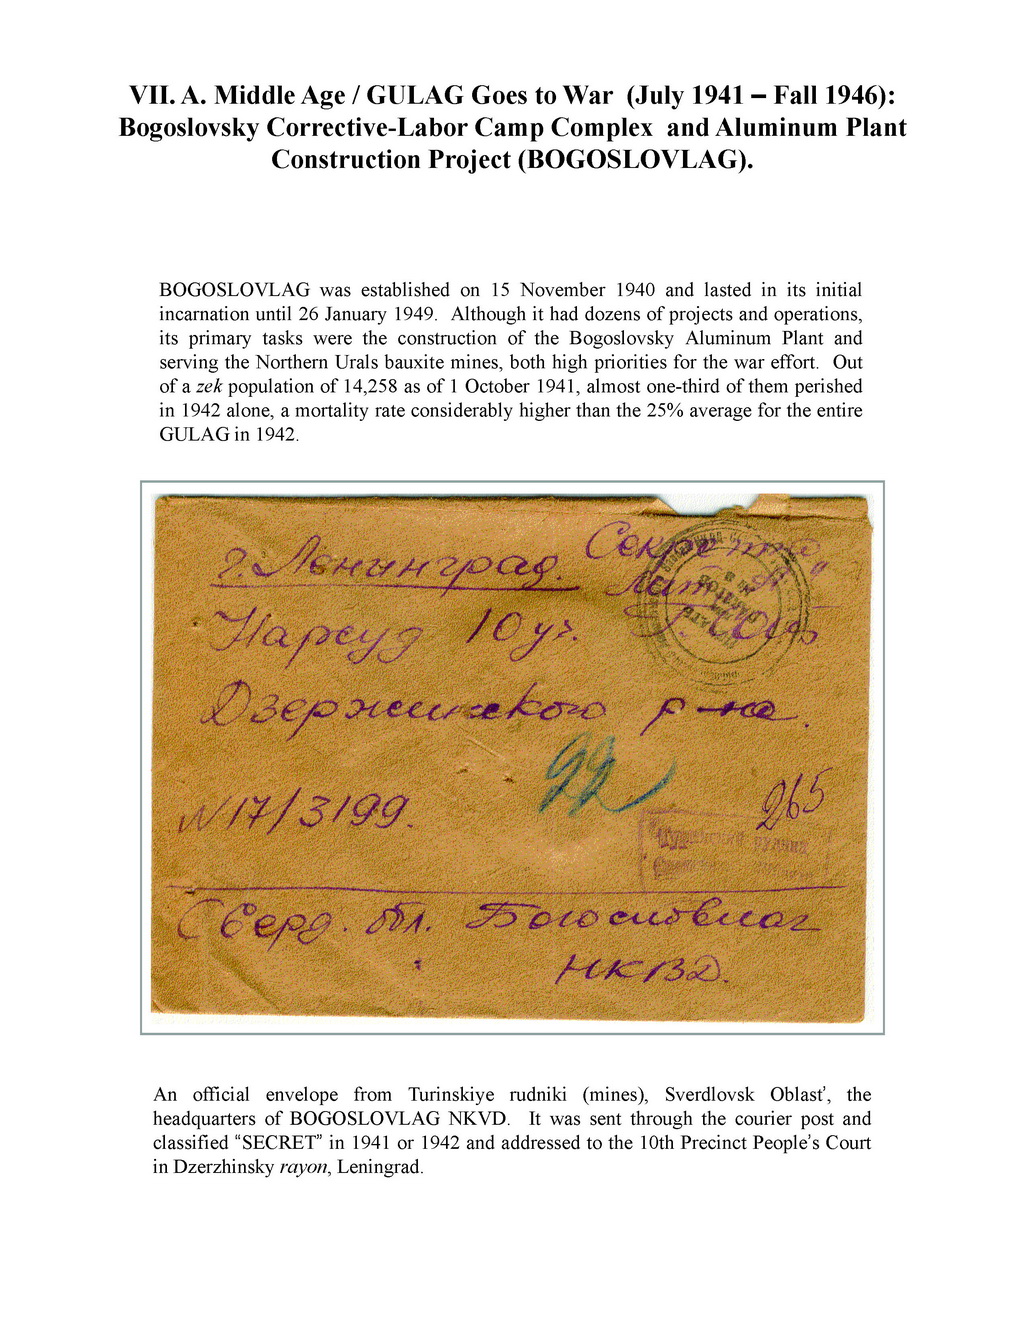 VII. A. Middle Age / GULAG Goes to War (July 1941 – Fall 1946):
Bogoslovsky Corrective-Labor Camp Complex and Aluminum Plant
Construction Project (BOGOSLOVLAG).
BOGOSLOVLAG was established on 15 November 1940 and lasted in its initial
incarnation until 26 January 1949. Although it had dozens of projects and operations,
its primary tasks were the construction of the Bogoslovsky Aluminum Plant and
serving the Northern Urals bauxite mines, both high priorities for the war effort. Out
of a zek population of 14,258 as of 1 October 1941, almost one-third of them perished
in 1942 alone, a mortality rate considerably higher than the 25% average for the entire
GULAG in 1942.
Секретно
г. Ленинград.
Нарсуд 10 уч.
Дзержинского р-на.
22
265
N17/3199.
Туринский рудник
Сверд. обл. Богословлаг
НКВД.
An official envelope from Turinskiye rudniki (mines), Sverdlovsk Oblast’, the
headquarters of BOGOSLOVLAG NKVD. It was sent through the courier post and
classified “SECRET” in 1941 or 1942 and addressed to the 10th Precinct People’s Court
in Dzerzhinsky rayon, Leningrad.